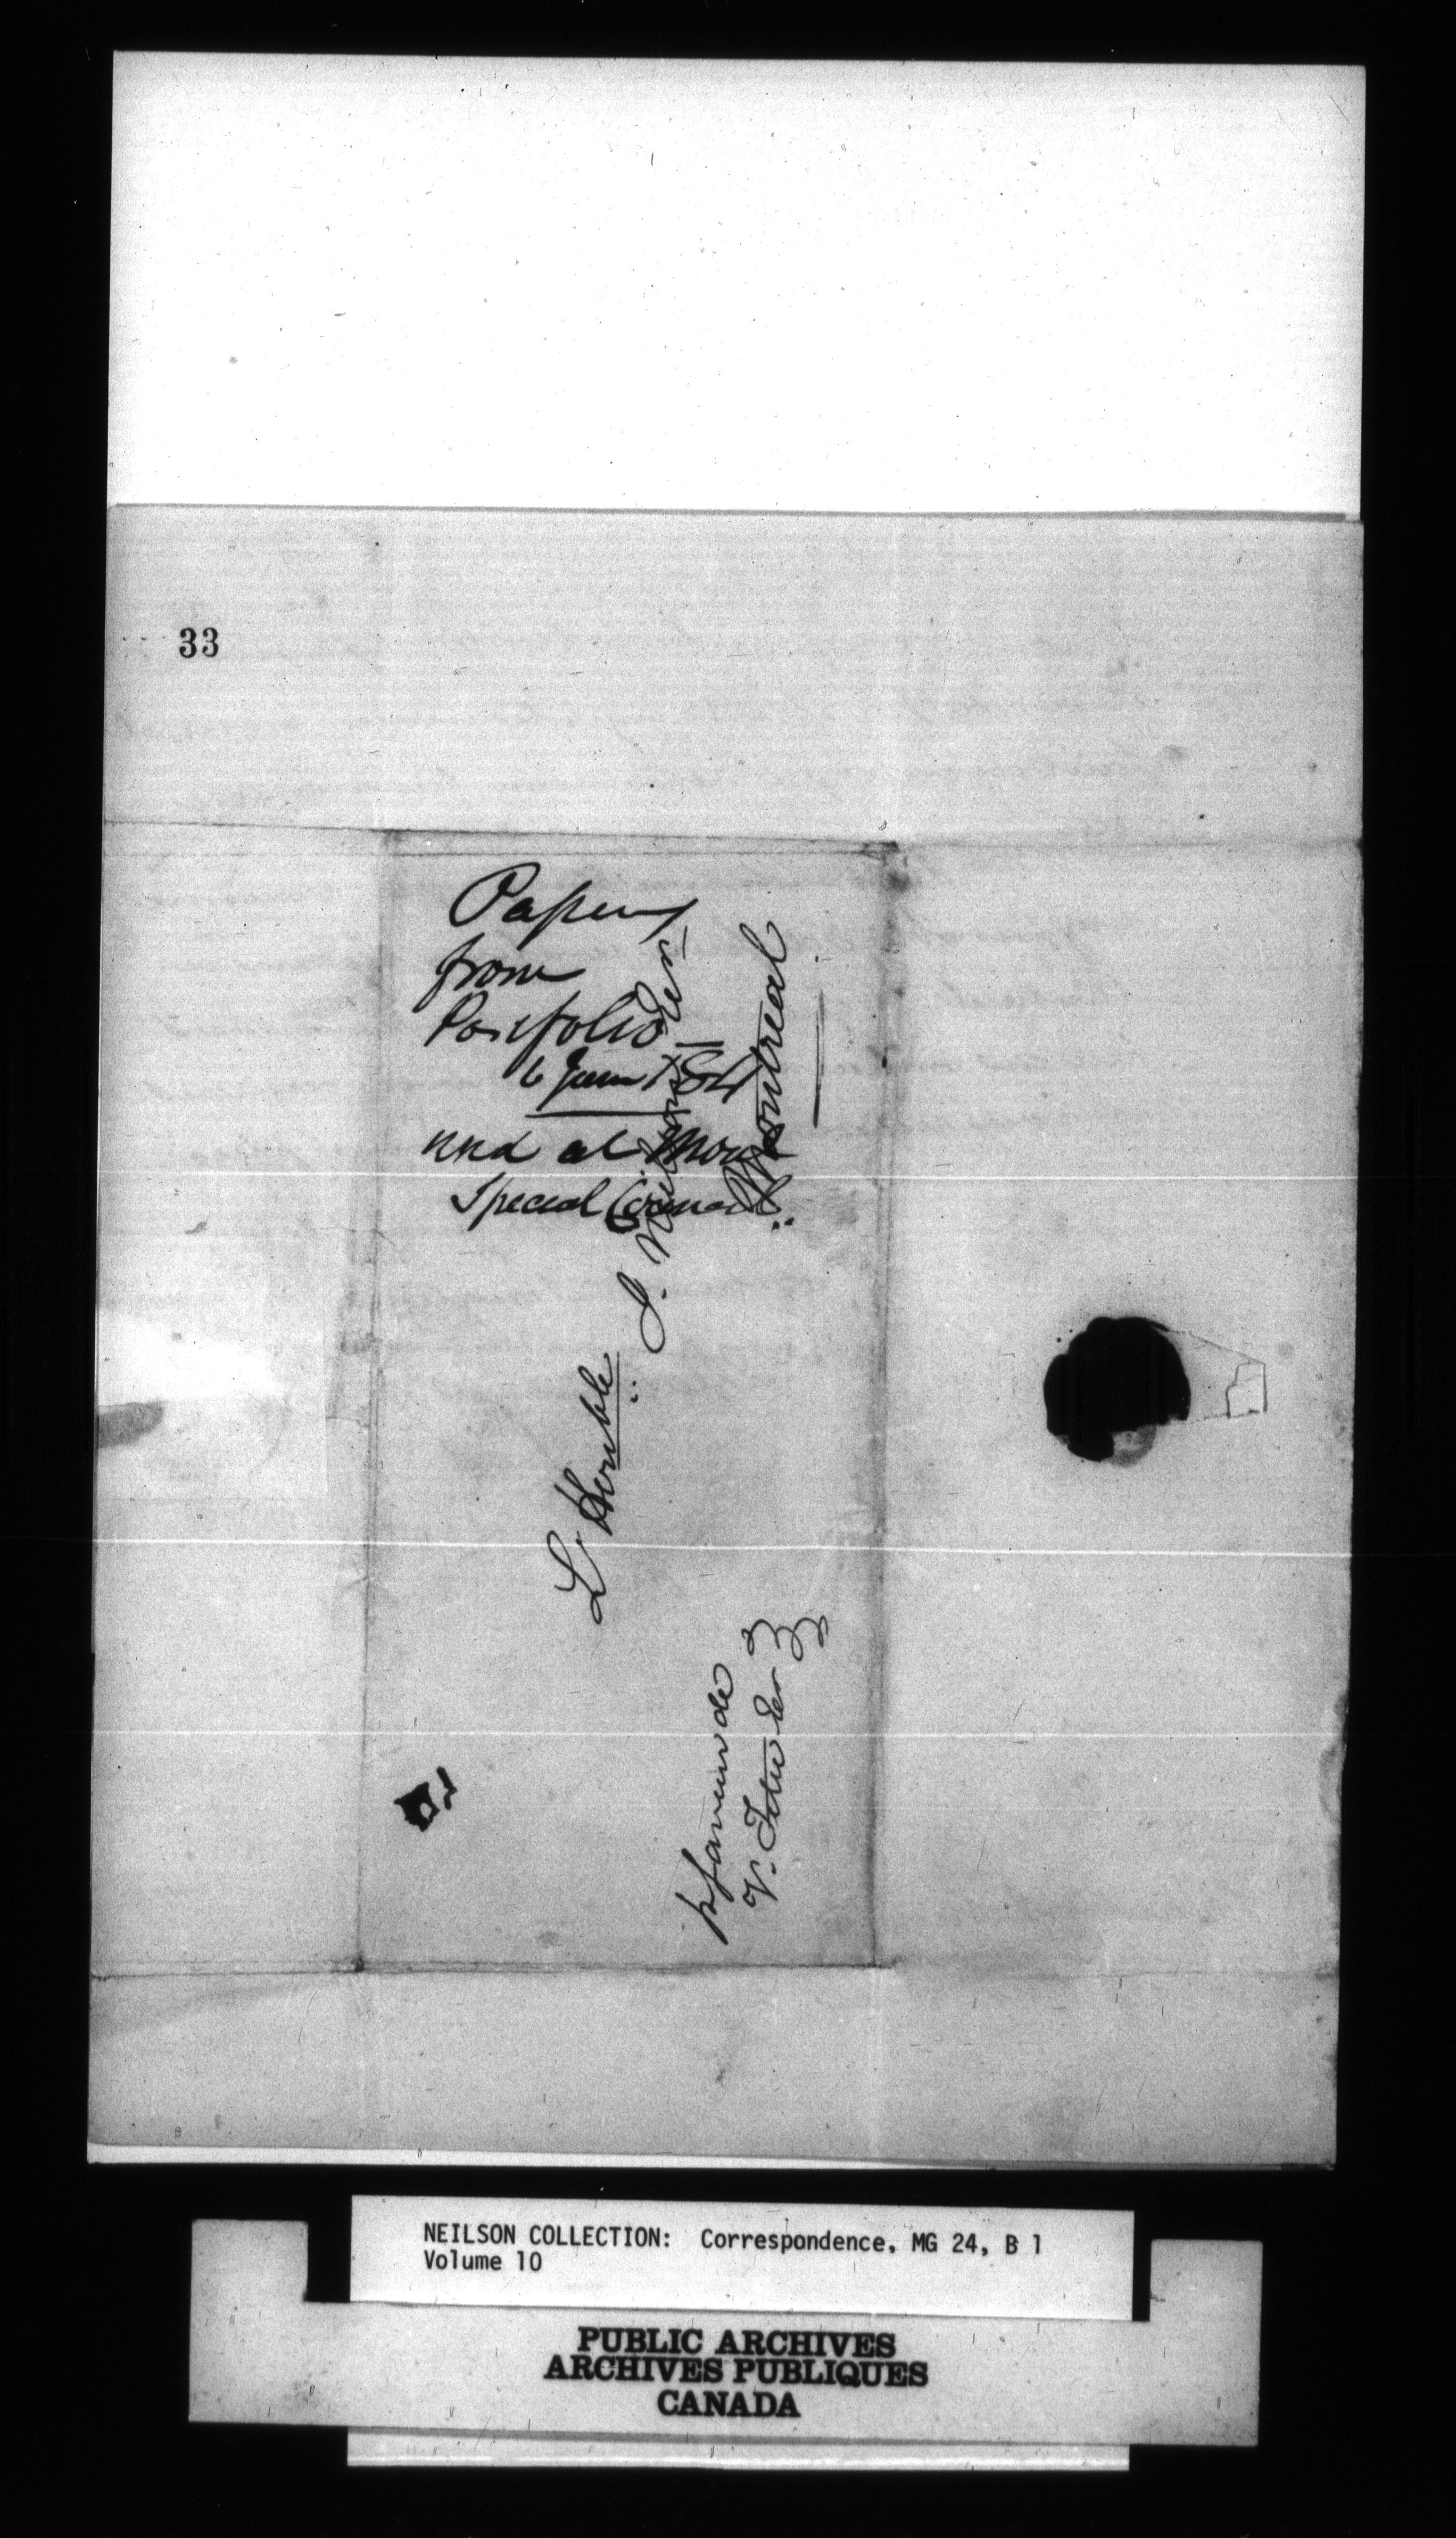 33
Papers
from
Portfolio
6 June
at
Special Council
L'Honble J. Neilson Ecr
Montreal
p faveur de
NEILSON COLLECTION: Correspondence, MG 24, B 1
Volume 10
PUBLIC ARCHIVES
ARCHIVES PUBLIQUES
CANADA